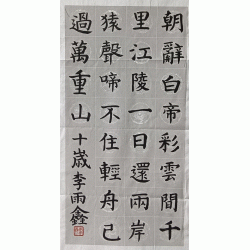 朝辭白帝彩雲間千
里江陵一日還兩岸
猿聲啼不住輕舟已
過萬重山十歲李雨鑫